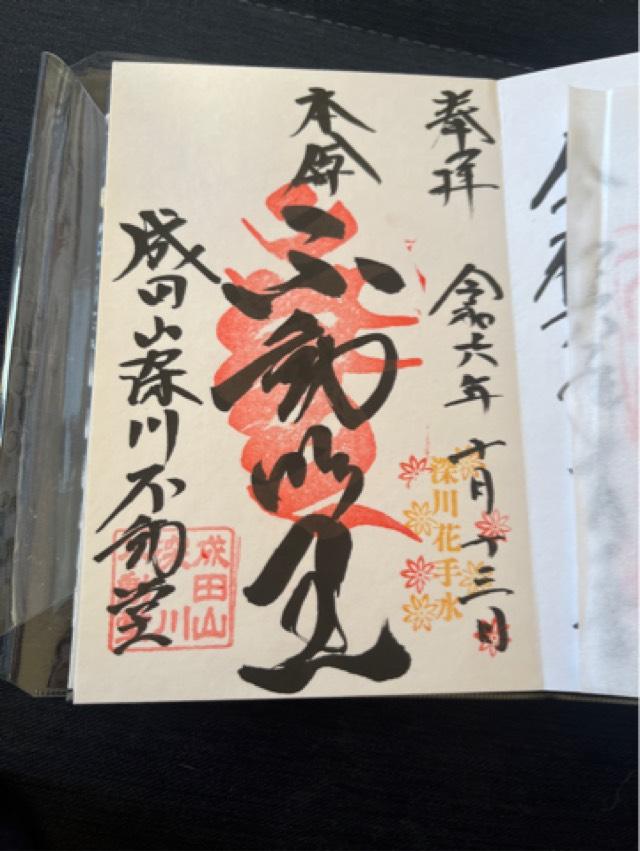 奉拝
令和六年十月十三日
深川花手水
本尊
不動明王
成田山深川不動堂
成田山
深川
不動堂